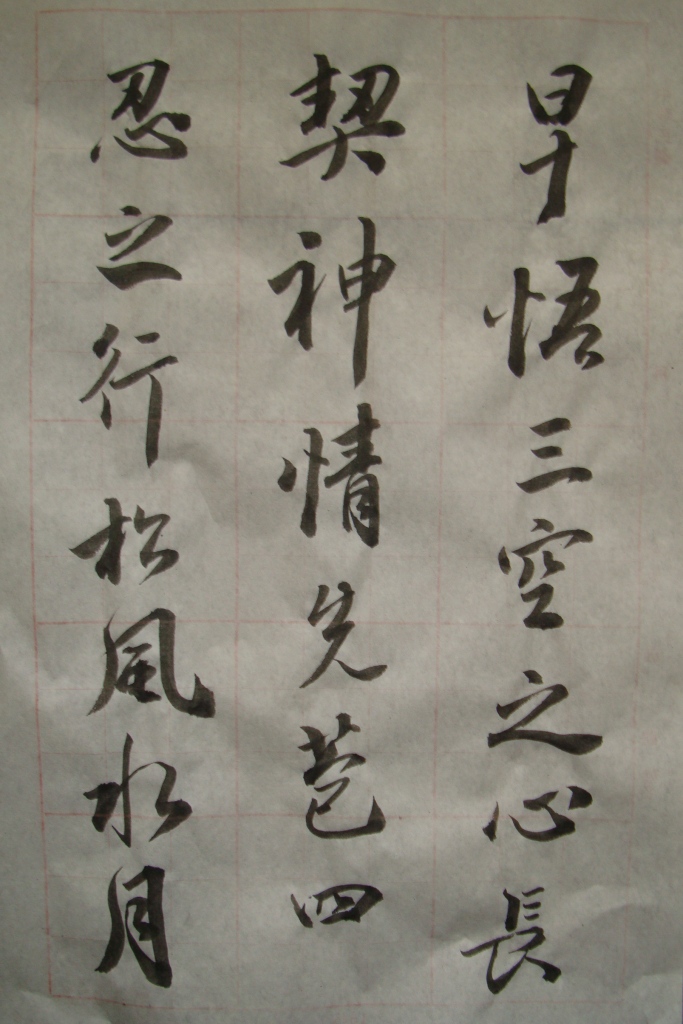 早悟三空之心長
契神情先苞四
忍之行松風水月